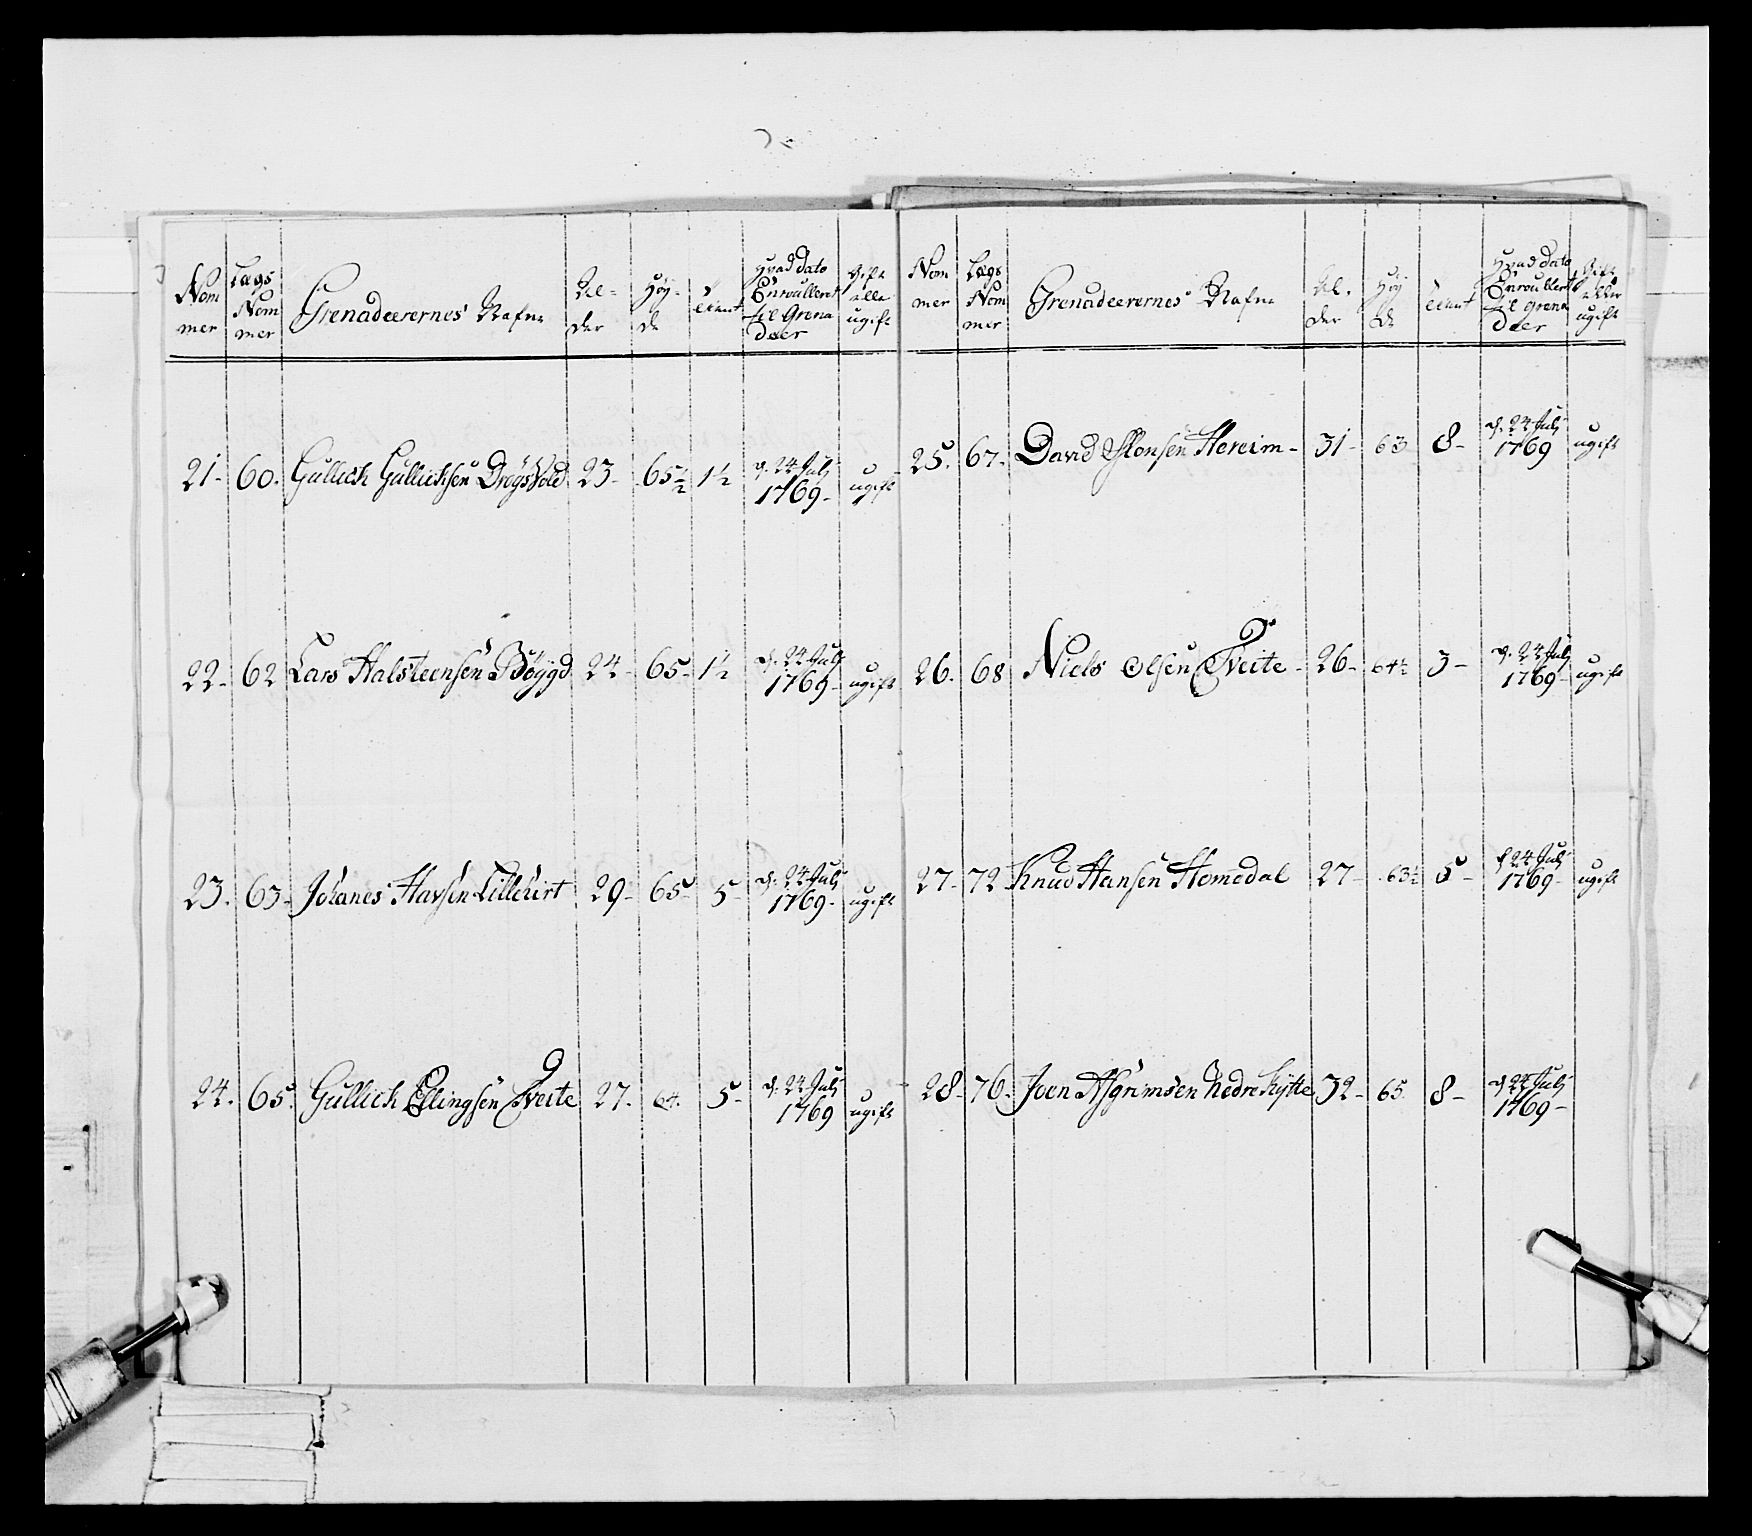 Nom mer | Lægs Nom mer | Grenadeerernes Nafne | Al- der | Høy- de | tient | Hvad dato Enroulleret til Grena deer | Gift eller ugift
21- | 60. | Gullich Gullichsen | 23- | 65½ | 1½ | d. 24 Julj 1769- | ugift
22- | 62 | Lars Halsteensen Bøygd | 24- | 65- | 1½ | d. 24 Julj 1769- | ugift
23. | 63- | Johanes Havsen | 29- | 65- | 5- | d. 24 Julj 1769- | ugift
24. | 65. | Gullich Ellingsen Tveite | 27. | 64. | 5- | d. 24 Julj 1769 | ugift
Nom mer | Lægs Nom mer | Grenadeerernes Nafne | Al- der | Høy de | tient | Hvad Dato Enroullert til Grena deer | Gift eller ugift
25. | 67- | David Hereim- | 31- | 63 | 8- | d. 24 Julj 1769 | ugift
26. | 68 | Niels Olsen Tveite- | 26- | 64½ | 3- | d. 24 Julj 1769- | ugift
27- | 72 | Knud Hansen Homedal | 27- | 63½ | 5- | d 24 Julj 1769- | ugift
28- | 76. | Joen Asgrimsen Nedre Kytte | 32- | 65. | 8- | d 24 Julj 1769-